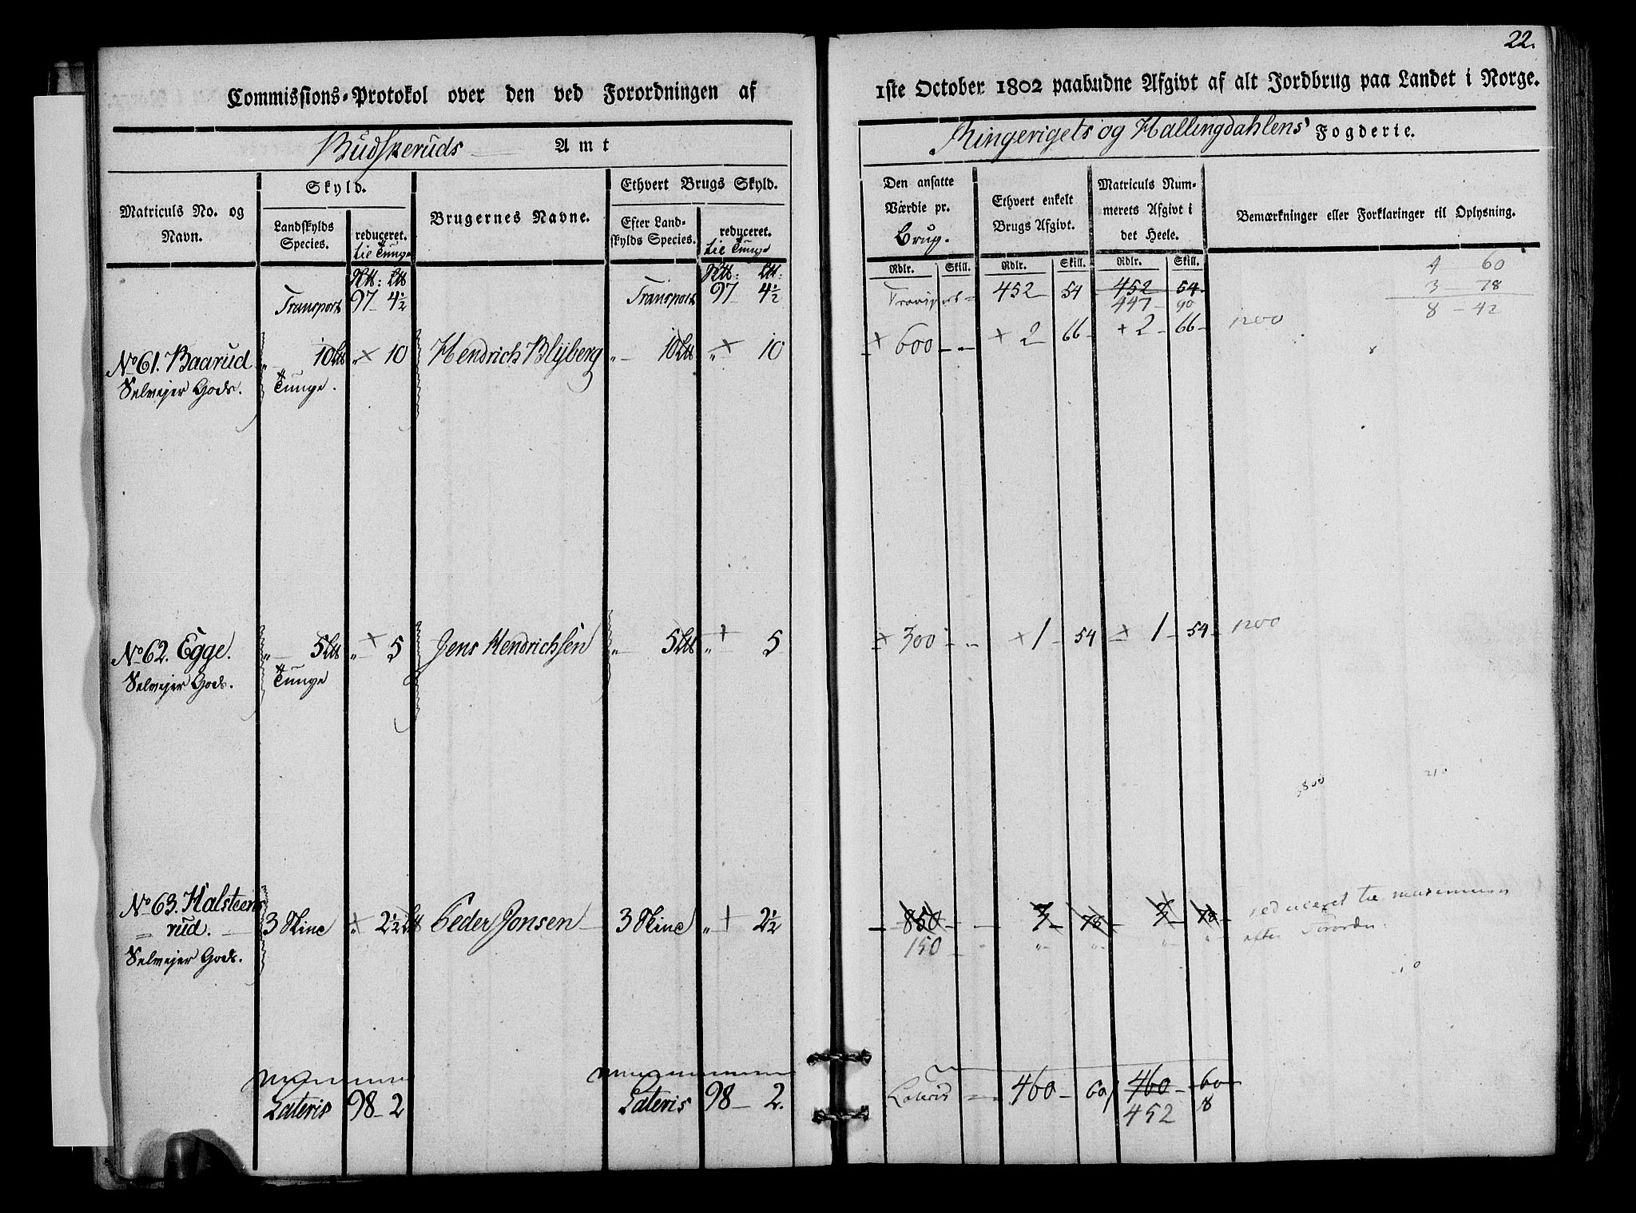 22.
Commissions-Protokol over den ved Forordningen af 1ste October 1802 paabudne Afgivt af alt Jordbrug paa Landet i Norge.
Budskeruds Amt
Ringerigets og Hallingdahlens Fogderie.
Matriculs No. og Navn.
Skyld.
Landskylds Species.
reduceret. Lit Tunge
Brugernes Navne.
Ethvert Brugs Skyld.
Efter Landskylds Species.
reduceret. Lit Tunge
Den ansatte Værdie pr. Brug.
Ethvert enkelt Brugs Afgivt.
Matriculs Nummerets Afgivt i det Heele.
Bemærkninger eller Forklaringer til Oplysning.
Rdlr. Skill. Rdlr. Skill. Rdlr. Skill.
Transport 97 4½ Transport 97 4½ Transport 452 54 452 54
447 90
4 60
3 78
8 42
No 61. Baarud 10 10 Hendrich Blyberg 10 10 600 2 66 2 66 1200
Selvejer Gods. Tunge.
No 62. Egge. 5 5 Jens Hendrichsen 5 5 300 1 54 1 54 1200
Selvejer Gods. Tunge
No 63. Halsteensrud. 3 Skind 2½ Peder Jonsen 3 Skind 2½ 850 3 78 3 78 reduceret til maximum
150 efter Forordn.
Selvejer Gods.
Lateris 98 2 Lateris 98 2. Lateris 460 60 460 60
452 8